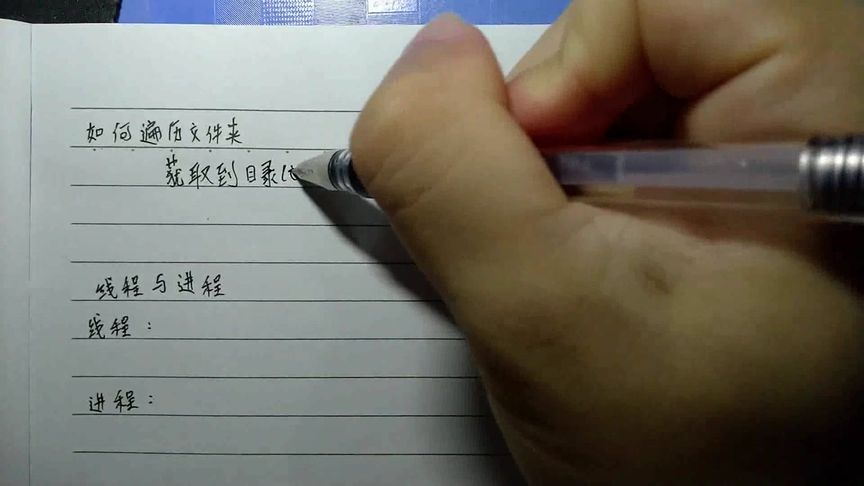 如何遍历文件夹
获取到目录
线程与进程
线程：
进程：